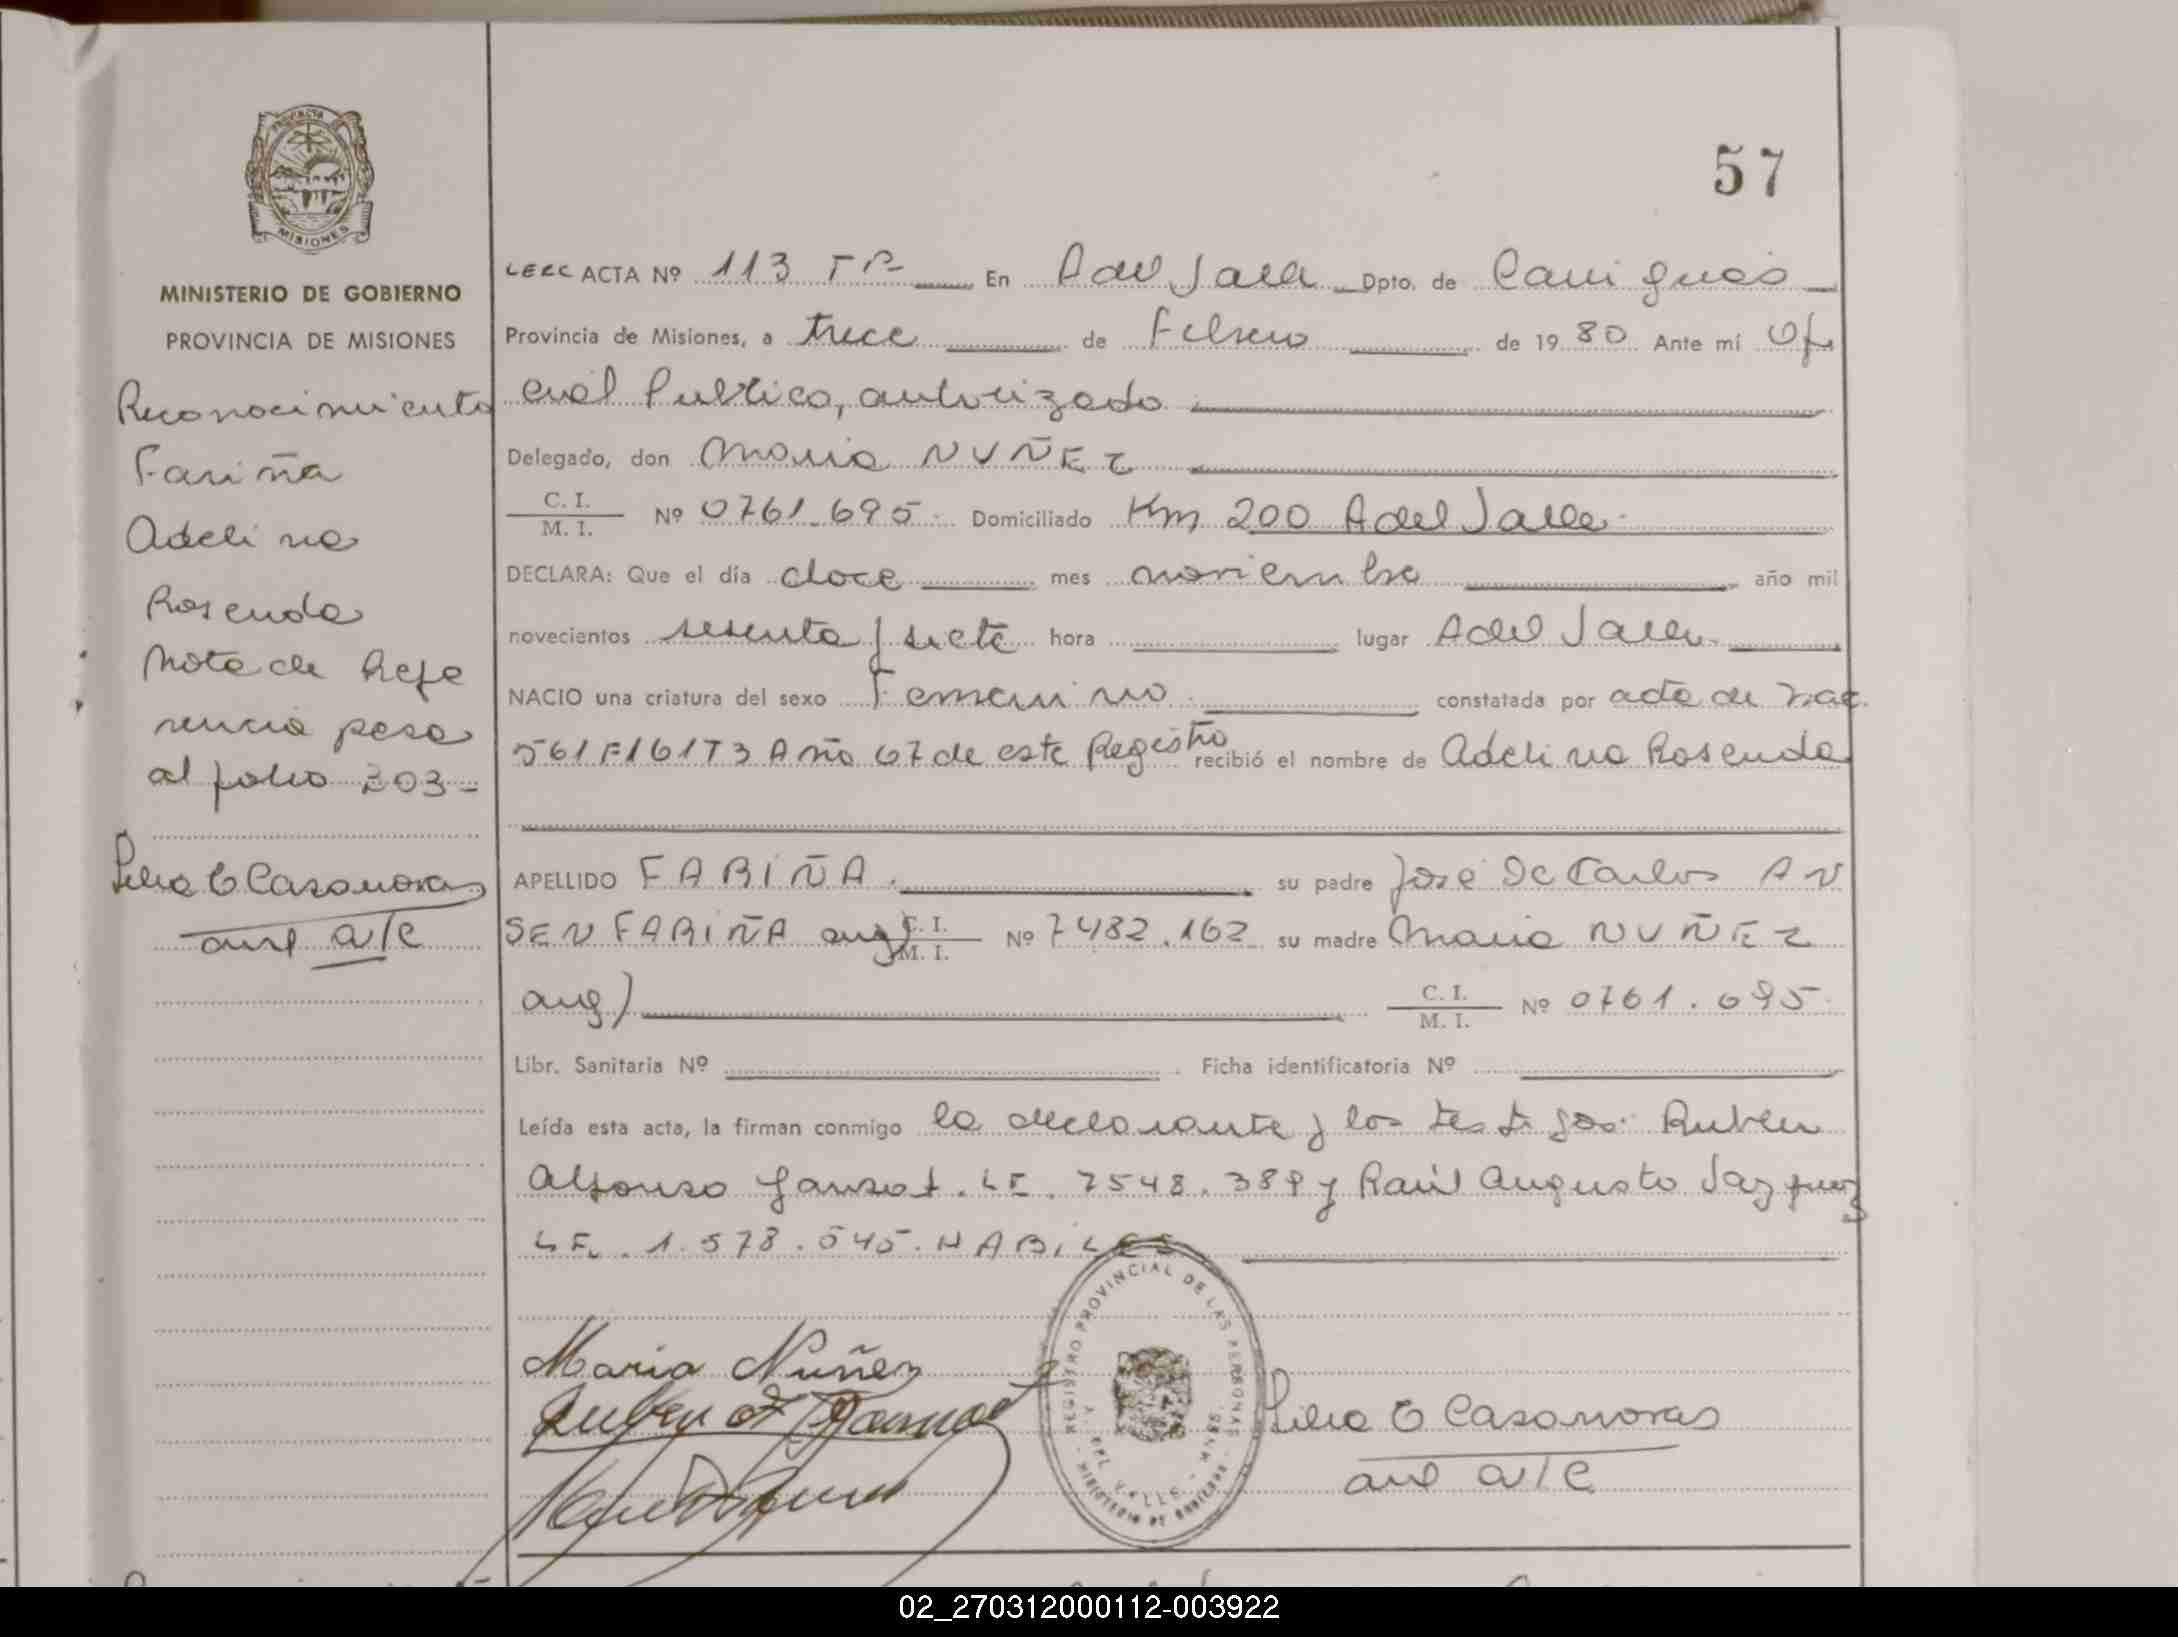 57
PROVINCIA DE
MISIONES
MINISTERIO DE GOBIERNO
PROVINCIA DE MISIONES
Reconocimiento
Fariña
Adelina
Rosenda
Nota de Refe
rencia pasa
al folio 303-
Casanovas
a/c
ACTA Nº 113 TR En A del Valle Dpto. de Cainguás
Provincia de Misiones, a trece de Febrero de 1980 Ante mí Ofi
cial Publico, autorizado
Delegado, don Maria NUÑEZ
C. I.
M. I. Nº 0761.695. Domiciliado Km 200 A del Valle.
DECLARA: Que el día doce mes noviembre año mil
novecientos sesenta y siete hora lugar A del Valle.
NACIO una criatura del sexo Femenino. constatada por acta de nac.
561F161T3 Año 67 de este Registro recibió el nombre de Adelina Rosenda
APELLIDO FARIÑA. su padre José De Carlos AN
SEN FARIÑA arg) C. I.
M. I. Nº 7482.162 su madre Maria NUÑEZ
arg) C. I.
M. I. Nº 0761.695.
Libr. Sanitaria Nº Ficha identificatoria Nº
Leída esta acta, la firman conmigo la declarante y los testigos: Ruben
Alfonso LE. 7548.389 y Raúl Augusto Vazquez
LE. 1.578.545. HABILES
Maria Nuñez
Ruben A
REGISTRO PROVINCIAL DE LAS PERSONAS
A. DEL VALLE - MNES.
MINISTERIO DE GOBIERNO
Casanovas
a/c
02_270312000112-003922